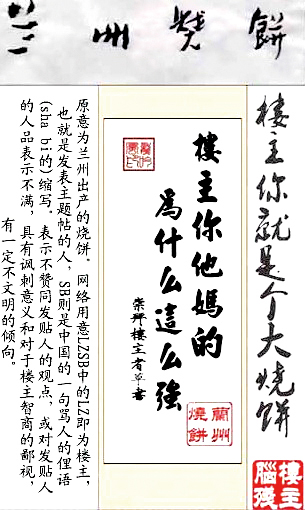 兰州燒餅
樓主你就是个大烧饼
樓主
腦殘
樓主你他媽的
為什么這么強
崇拜樓主者草書
蘭州
燒餅
原意为兰州出产的烧饼。网络用意LZSB中的LZ即为楼主,
也就是发表主题帖的人,SB则是中国的一句骂人的俚语
(sha bi的)缩写。表示不赞同发贴人的观点,或对发贴人
的人品表示不满,具有讽刺意义和对于楼主智商的鄙视,
有一定不文明的倾向。